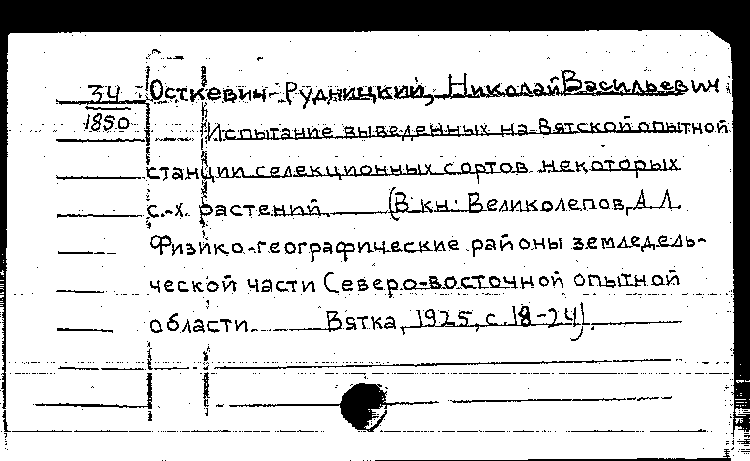 34 Осткевич-Рудницкий, Николай Васильевич
1850 Испытание выведенных на Вятской опытной
станции селекционных сортов некоторых
с.-х. растений. (В кн: Великолепов, А.Л.
Физико-географические районы земледель-
ческой части Северо-восточной опытной
области. Вятка, 1925, с. 18-24).